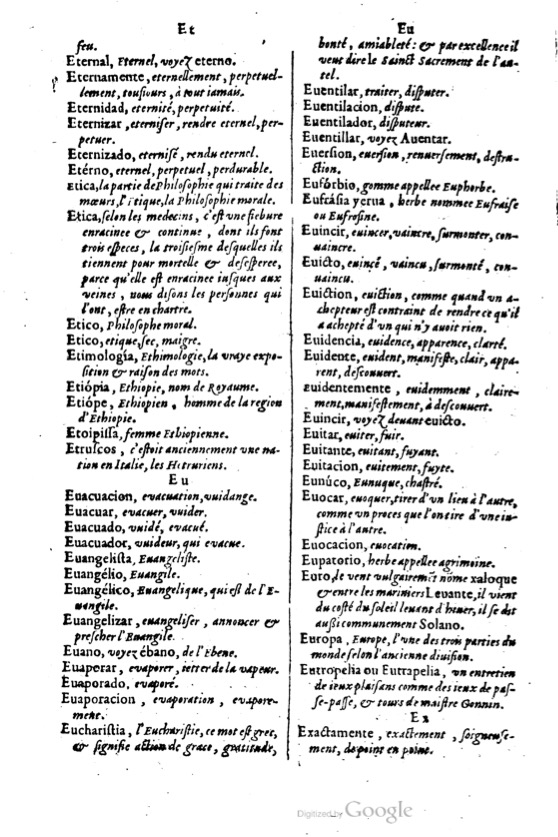 Et
feu.
Eternal, Eternel, voyez eterno.
Eternamente, eternellement, perpetuel-
lement, tousiours, à tout iamais.
Eternidad, eternité, perpetuité.
Eternizar, eterniser, rendre eternel, per-
petuer.
Eternizado, eternisé, rendu eternel.
Etérno, eternel, perpetuel, perdurable.
Etica, la partie de Philosophie qui traite des
mœurs, l'Etique, la Philosophie morale.
Etica, selon les medecins, c'est vne fiebure
enracinee & continue, dont ils font
trois especes, la troisiesme desquelles ils
tiennent pour mortelle & desesperee,
parce qu'elle est enracinee iusques aux
veines, nous disons les personnes qui
l'ont, estre en chartre.
Etico, Philosophe moral.
Etico, etique, sec, maigre.
Etimología, Ethimologie, la vraye expo-
sition & raison des mots.
Etiópia, Ethiopie, nom de Royaume.
Etiópe, Ethiopien, homme de la region
d'Ethiopie.
Etoipissa, femme Ethiopienne.
Etruscos, c'estoit anciennement vne na-
tion en Italie, les Hetruriens.
Eu
Euacuacion, evacuation, vuidange.
Euacuar, evacuer, vuider.
Euacuado, vuidé, evacué.
Euacuador, vuideur, qui evacue.
Euangelista, Euangeliste.
Euangélio, Euangile.
Euangélico, Euangelique, qui est de l'E-
uangile.
Euangelizar, euangeliser, annoncer &
prescher l'Euangile.
Euano, voyez ébano, de l'Ebene.
Euaporar, evaporer, ietter de la vapeur.
Euaporado, evaporé.
Euaporacion, evaporation, evapore-
ment.
Eucharistia, l'Eucharistie, ce mot est grec,
& signifie action de grace, gratitude,
Eu
bonté, amiableté: & par excellence il
veut dire le Sainct Sacrement de l'au-
tel.
Euentilar, traiter, disputer.
Euentilacion, dispute.
Euentilador, disputeur.
Euentillar, voyez Auentar.
Euersion, euersion, renuersement, destru-
ction.
Eufórbio, gomme appellee Euphorbe.
Eufrásia yerua, herbe nommee Eufraise
ou Eufrosine.
Euincir, euincer, vaincre, surmonter, con-
uaincre.
Euicto, euincé, vaincu, surmonté, con-
uaincu.
Euiction, euiction, comme quand vn a-
chepteur est contraint de rendre ce qu'il
a achepté d'vn qui n'y auoit rien.
Euidencia, euidence, apparence, clarté.
Euidente, euident, manifeste, clair, appa-
rent, descouuert.
Euidentemente, euidemment, claire-
ment, manifestement, à descouuert.
Euincir, voyez deuant euicto.
Euitar, euiter, fuir.
Euitante, euitant, fuyant.
Euitacion, euitement, fuyte.
Eunúco, Eunuque, chastré.
Euocar, euoquer, tirer d'vn lieu à l'autre,
comme vn proces que l'on tire d'vne iu-
stice à l'autre.
Euocacion, euocation.
Eupatorio, herbe appellee agrimoine.
Euro, le vent vulgairement nōmé xaloque
& entre les mariniers Leuante, il vient
du costé du soleil leuant d'hyuer, il se dit
aussi communement Solano.
Europa, Europe, l'vne des trois parties du
monde selon l'ancienne diuision.
Eutropelia ou Eutrapelia, vn entretien
de ieux plaisans comme des ieux de pas-
se-passe, & tours de maistre Gonnin.
Ex
Exactamente, exactement, soigneuse-
ment, de point en point.
Digitized by Google